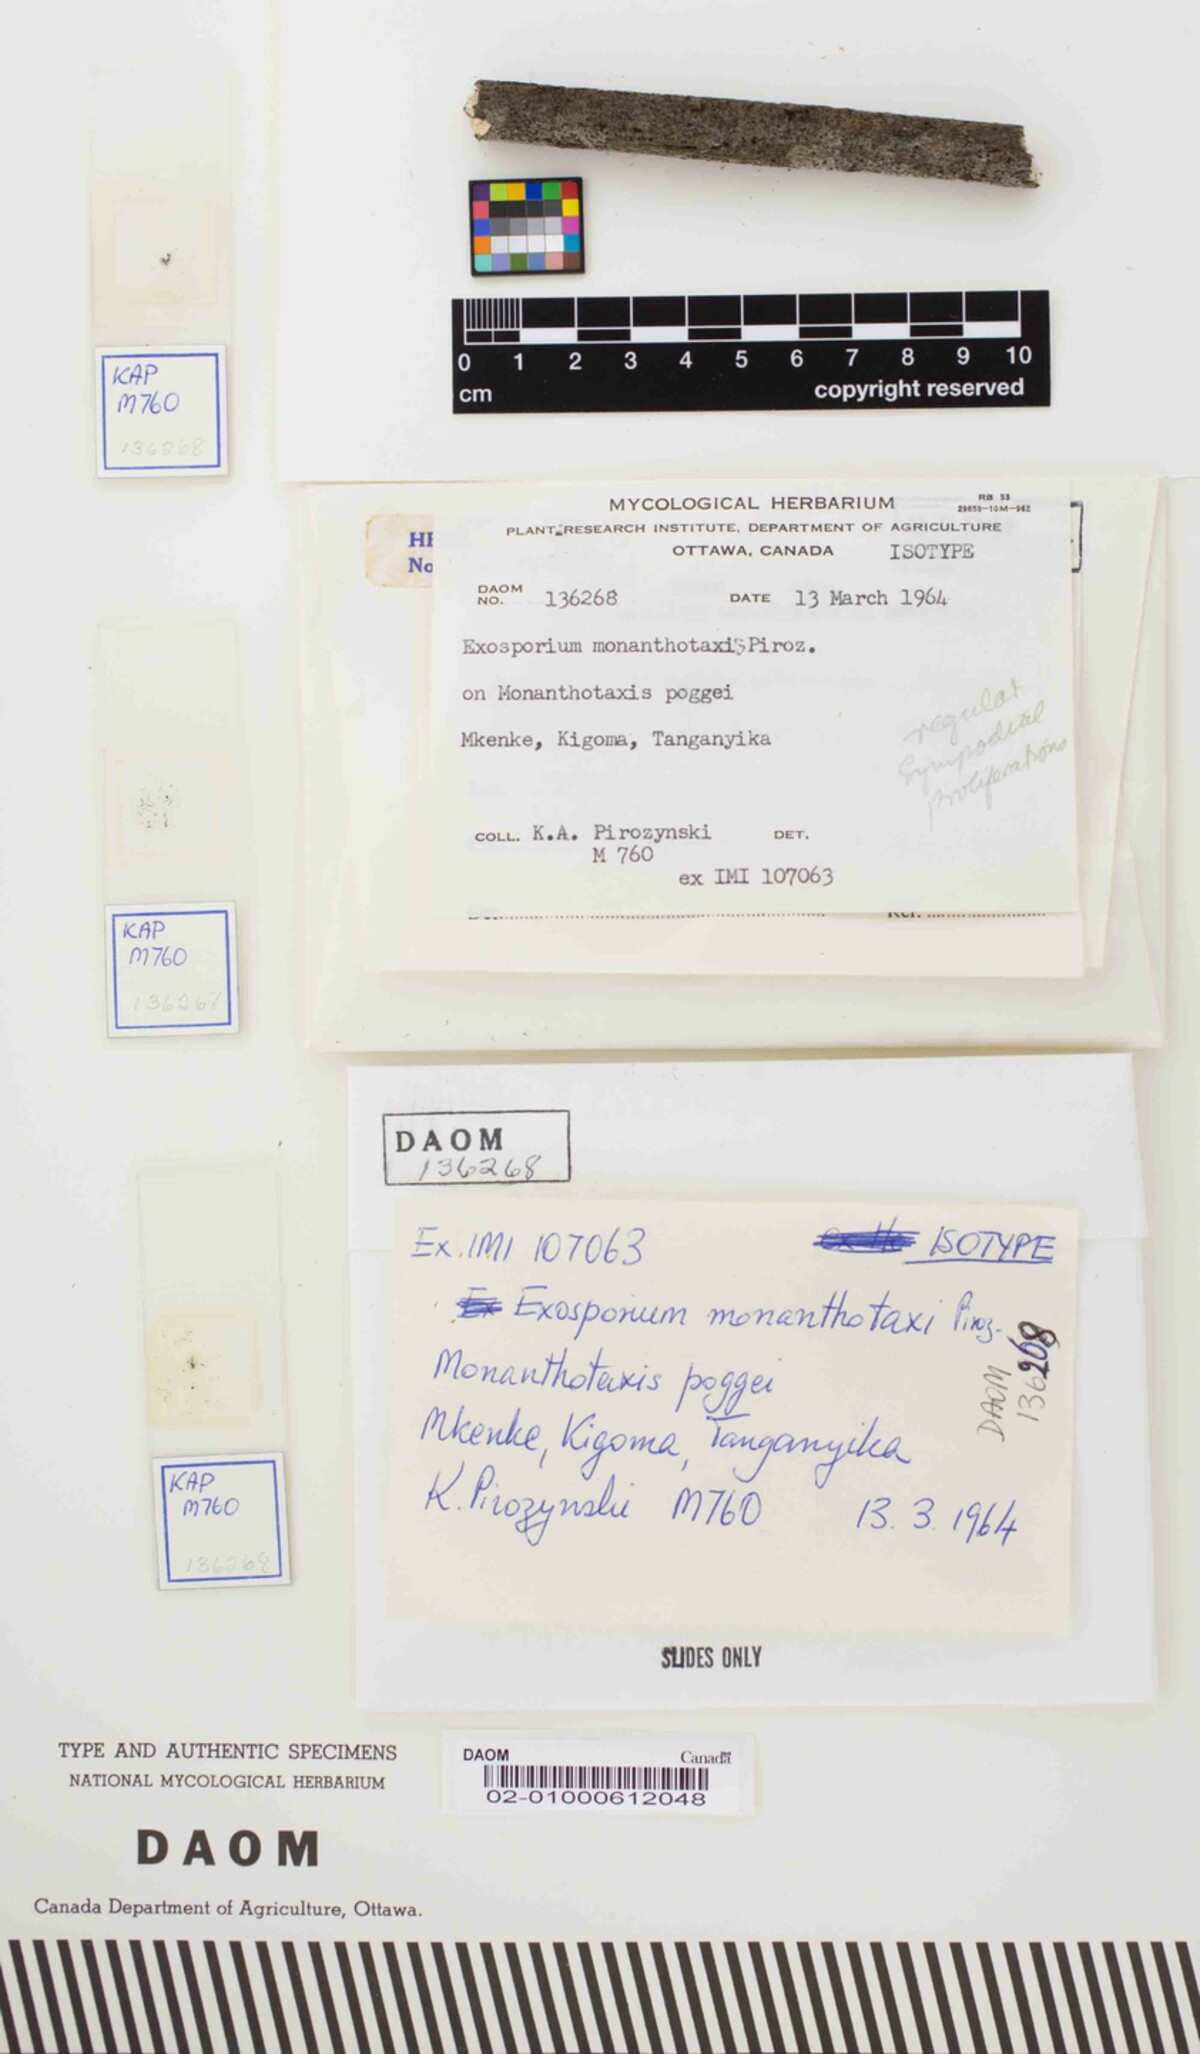 KAP
M760
136268
0 1 2 3 4 5 6 7 8 9 10
cm copyright reserved
MYCOLOGICAL HERBARIUM
RB 53
29650-10M-962
PLANT RESEARCH INSTITUTE, DEPARTMENT OF AGRICULTURE
OTTAWA, CANADA ISOTYPE
DAOM
NO. 136268 DATE 13 March 1964
Exosporium monanthotaxis Piroz.
on Monanthotaxis poggei
Mkenke, Kigoma, Tanganyika
regular
Sympodial
proliferations
COLL. K.A. Pirozynski DET.
M 760
ex IMI 107063
No
KAP
M760
136268
DAOM
136268
Ex. IMI 107063 ISOTYPE
Exosporium monanthotaxi Piroz.
Monanthotaxis poggei
Mkenke, Kigoma, Tanganyika
K. Pirozynski M760 13. 3. 1964
DAOM
136268
KAP
M760
136268
SLIDES ONLY
TYPE AND AUTHENTIC SPECIMENS
NATIONAL MYCOLOGICAL HERBARIUM
DAOM
Canada Department of Agriculture, Ottawa.
DAOM Canada
02-01000612048